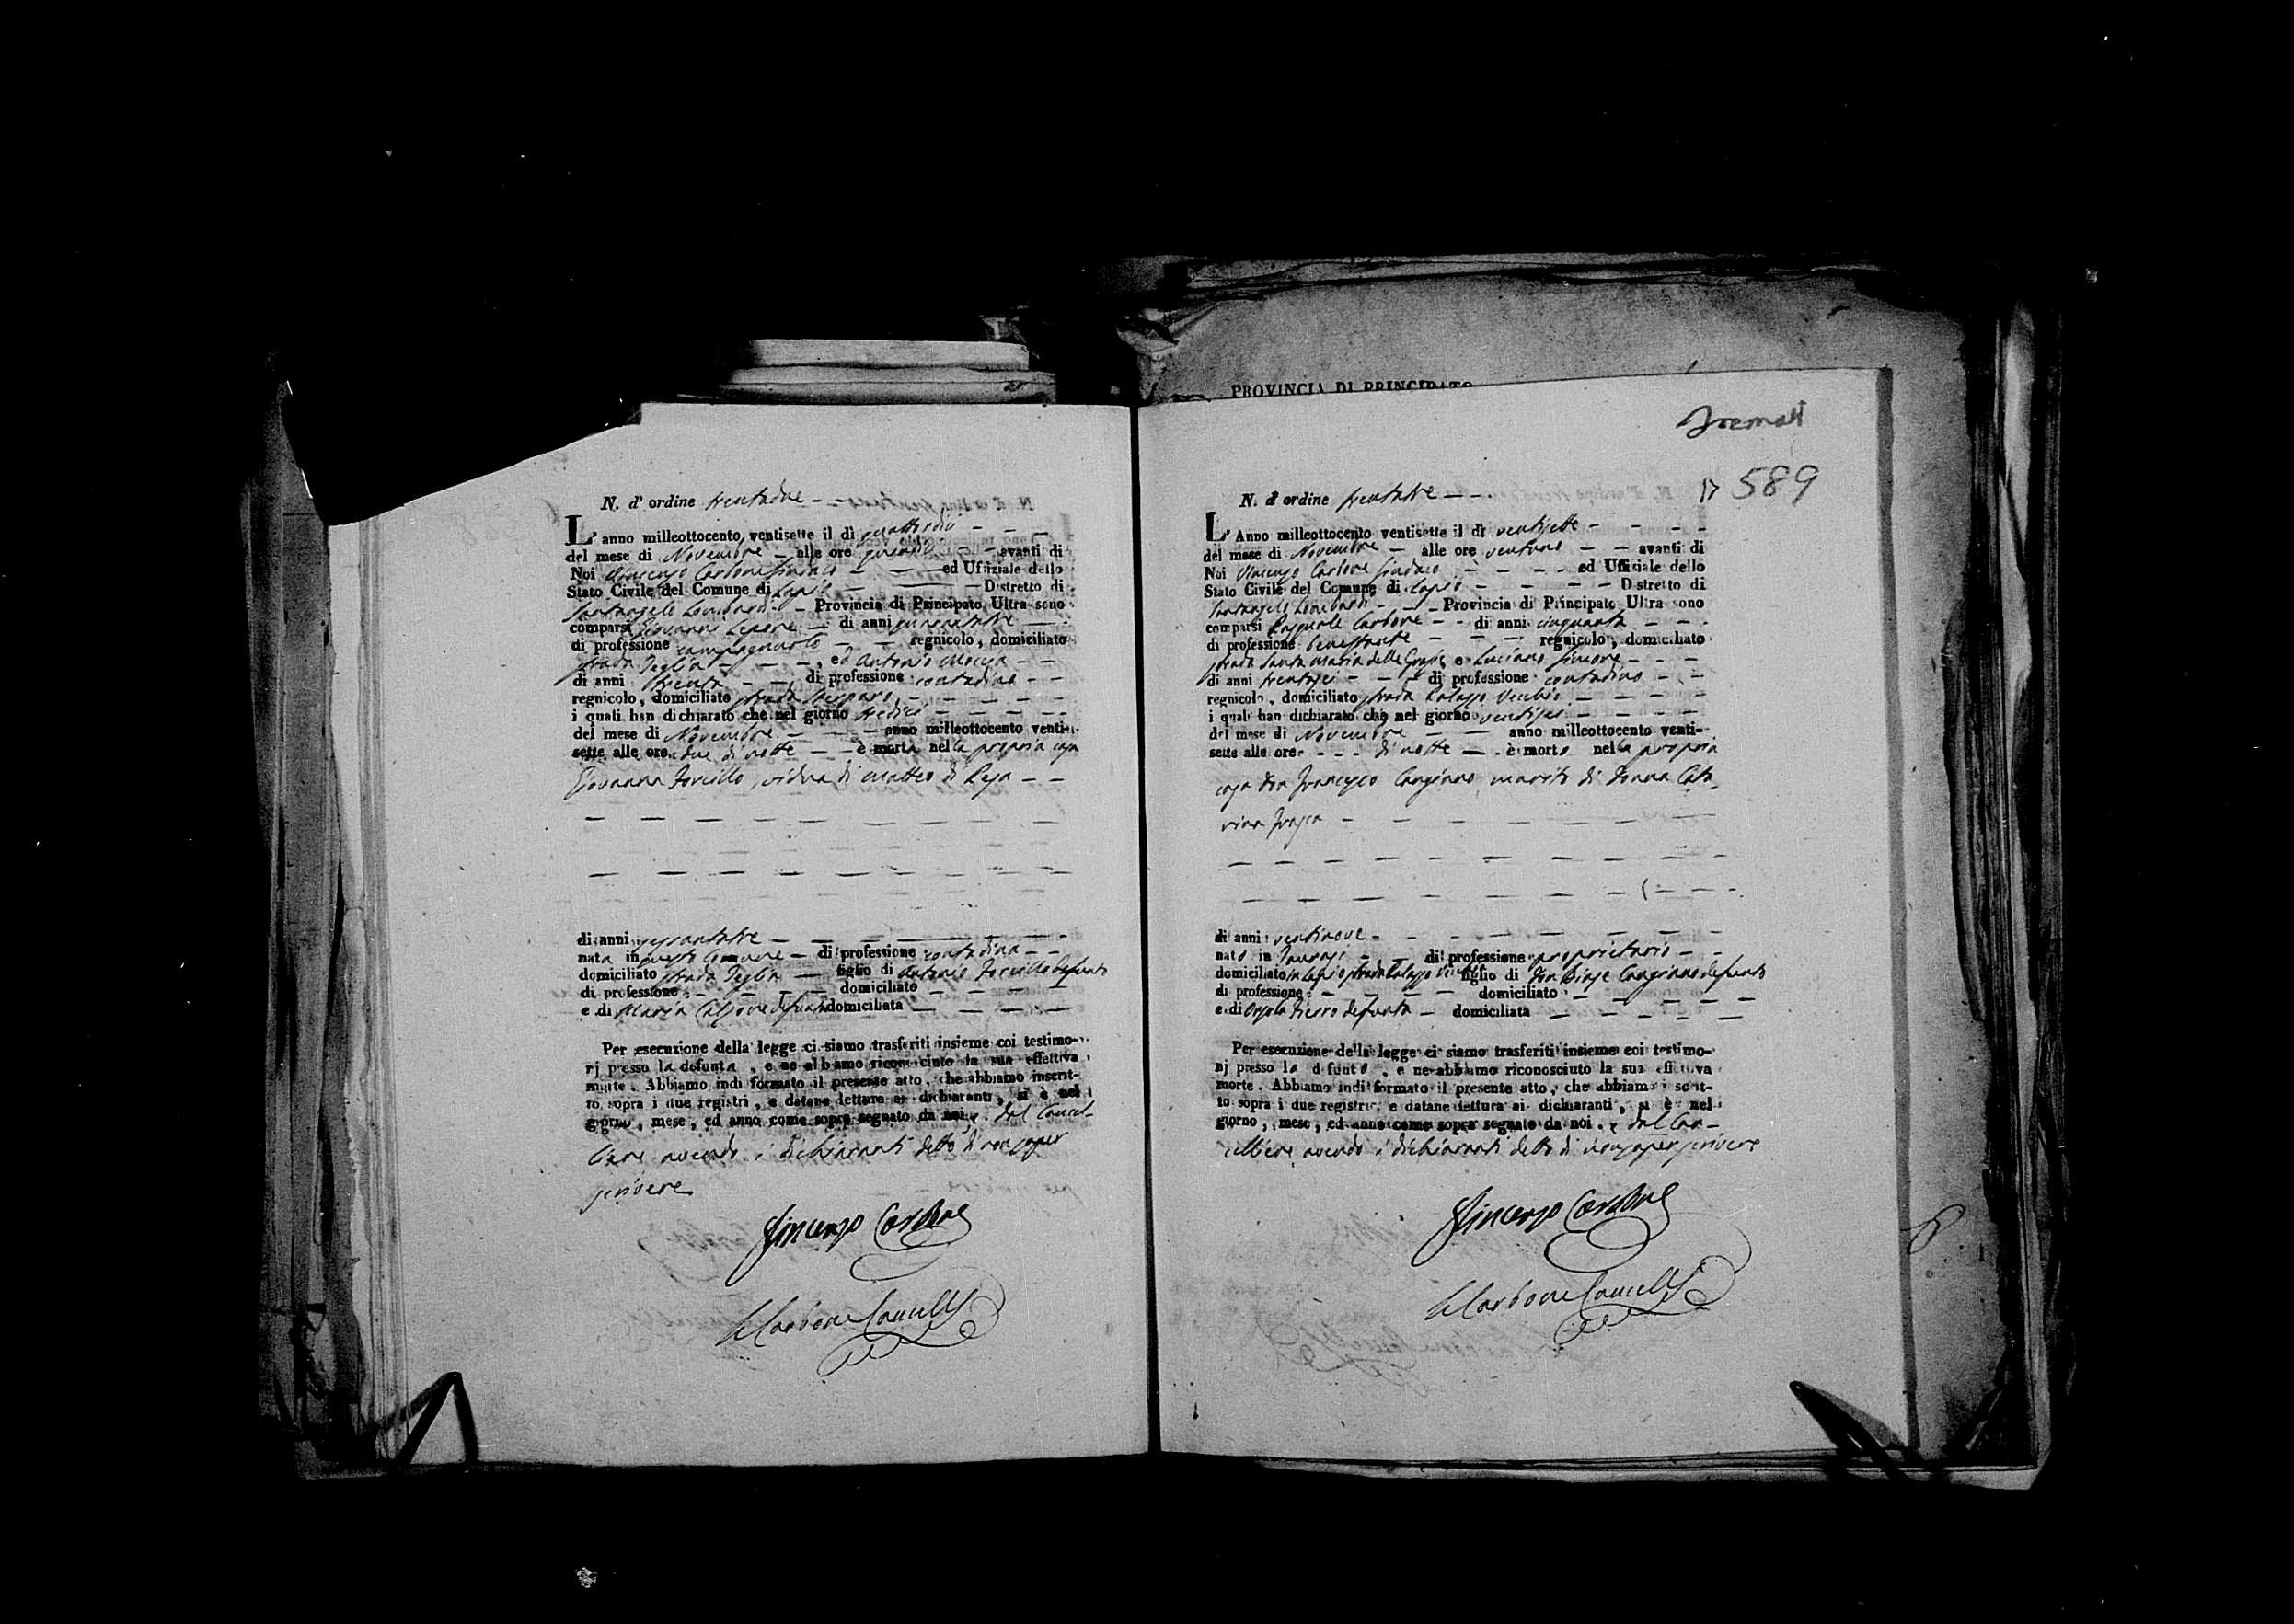 N. d' ordine trentadue
L' anno milleottocento ventisette il dì quattordici
del mese di Novembre alle ore avanti di
Noi Vincenzo Carbone Sindaco ed Uffiziale dello
Stato Civile del Comune di Lapio Distretto di
Santangelo Lombardi Provincia di Principato Ultra sono
comparsi Giovanni Lepore di anni quarantatre
di professione campagnuolo regnicolo, domiciliato
strada Teglia, ed Antonio Moccia
di anni trenta di professione contadino
regnicolo, domiciliato strada
i quali han dichiarato che nel giorno tredici
del mese di Novembre anno milleottocento venti-
sette alle ore due di notte è morta nella propria casa
Giovanna Forcillo, vidua di Matteo di
di anni sessantatre
nata in questo Comune di professione contadina
domiciliato strada Teglia figlio di Antonio Forcillo defunto
di professione domiciliato
e di Maria Calzone defunta domiciliata
Per esecuzione della legge ci siamo trasferiti insieme coi testimo-
nj presso la defunta, e ne abbiamo riconosciuto la sua effettiva
morte. Abbiamo indi formato il presente atto, che abbiamo inscrit-
to sopra i due registri, e datane lettura ai dichiaranti, si è nel
giorno, mese, ed anno come sopra segnato da noi, e dal Cancel-
liere avendo i dichiaranti detto di non saper
scrivere
Vincenzo Carbone
Carbone Cancell
PROVINCIA DI PRINCIPATO
589
N. d' ordine trentatre
L' Anno milleottocento ventisette il dì ventisette
del mese di Novembre alle ore ventuno avanti di
Noi Vincenzo Carbone Sindaco ed Uffiziale dello
Stato Civile del Comune di Lapio Distretto di
Santangelo Lombardi Provincia di Principato Ultra sono
comparsi Pasquale Carbone di anni cinquanta
di professione benestante regnicolo, domiciliato
strada Santa Maria delle Grazie e Luciano Simone
di anni trentasei di professione contadino
regnicolo, domiciliato strada Palazzo Vecchio
i quali han dichiarato che nel giorno ventisei
del mese di Novembre anno milleottocento venti-
sette alle ore di notte è morto nella propria
casa Don Francesco Cangiano marito di Donna Cata-
rina
di anni ventinove
nato in Taurasi di professione proprietario
domiciliato in Lapio strada Palazzo Vecchio figlio di Don Biase Cangiano defunto
di professione domiciliato
e di Orsola Pierro defunta domiciliata
Per esecuzione della legge ci siamo trasferiti insieme coi testimo-
nj presso lo defunto, e ne abbiamo riconosciuto la sua effettiva
morte. Abbiamo indi formato il presente atto, che abbiamo iscrit-
to sopra i due registri, e datane lettura ai dichiaranti, si è nel
giorno, mese, ed anno come sopra segnato da noi, e dal Can-
celliere avendo i dichiaranti detto di non saper scrivere
Vincenzo Carbone
Carbone Cancell